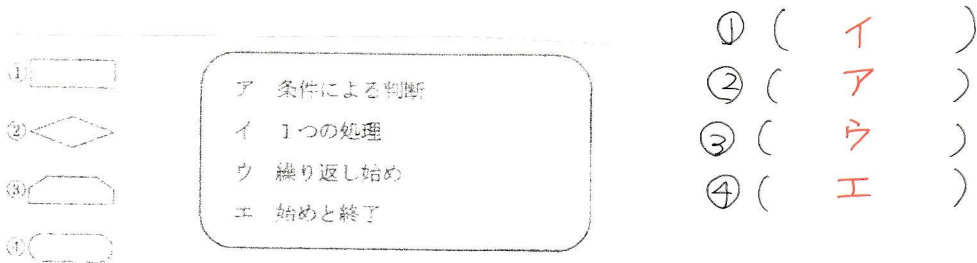 ①
②
③
④
ア 条件による判断
イ 1つの処理
ウ 繰り返し始め
エ 始めと終了
① ( イ )
② ( ア )
③ ( ウ )
④ ( エ )